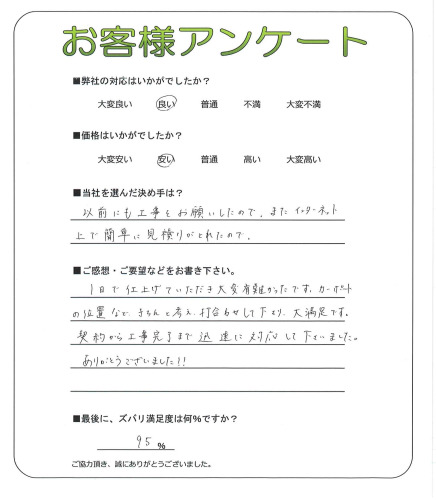 お客様アンケート
■弊社の対応はいかがでしたか？
大変良い 良い 普通 不満 大変不満
■価格はいかがでしたか？
大変安い 安い 普通 高い 大変高い
■当社を選んだ決め手は？
以前にも工事をお願いしたので。またインターネット
上で簡単に見積りがとれたので。
■ご感想・ご要望などをお書き下さい。
1日で仕上げていただき大変有難かったです。カーポート
の位置など、きちんと考え、打合わせして下さり、大満足です。
契約から工事完了まで迅速に対応して下さいました。
ありがとうございました!!
■最後に、ズバリ満足度は何%ですか？
95 %
ご協力頂き、誠にありがとうございました。